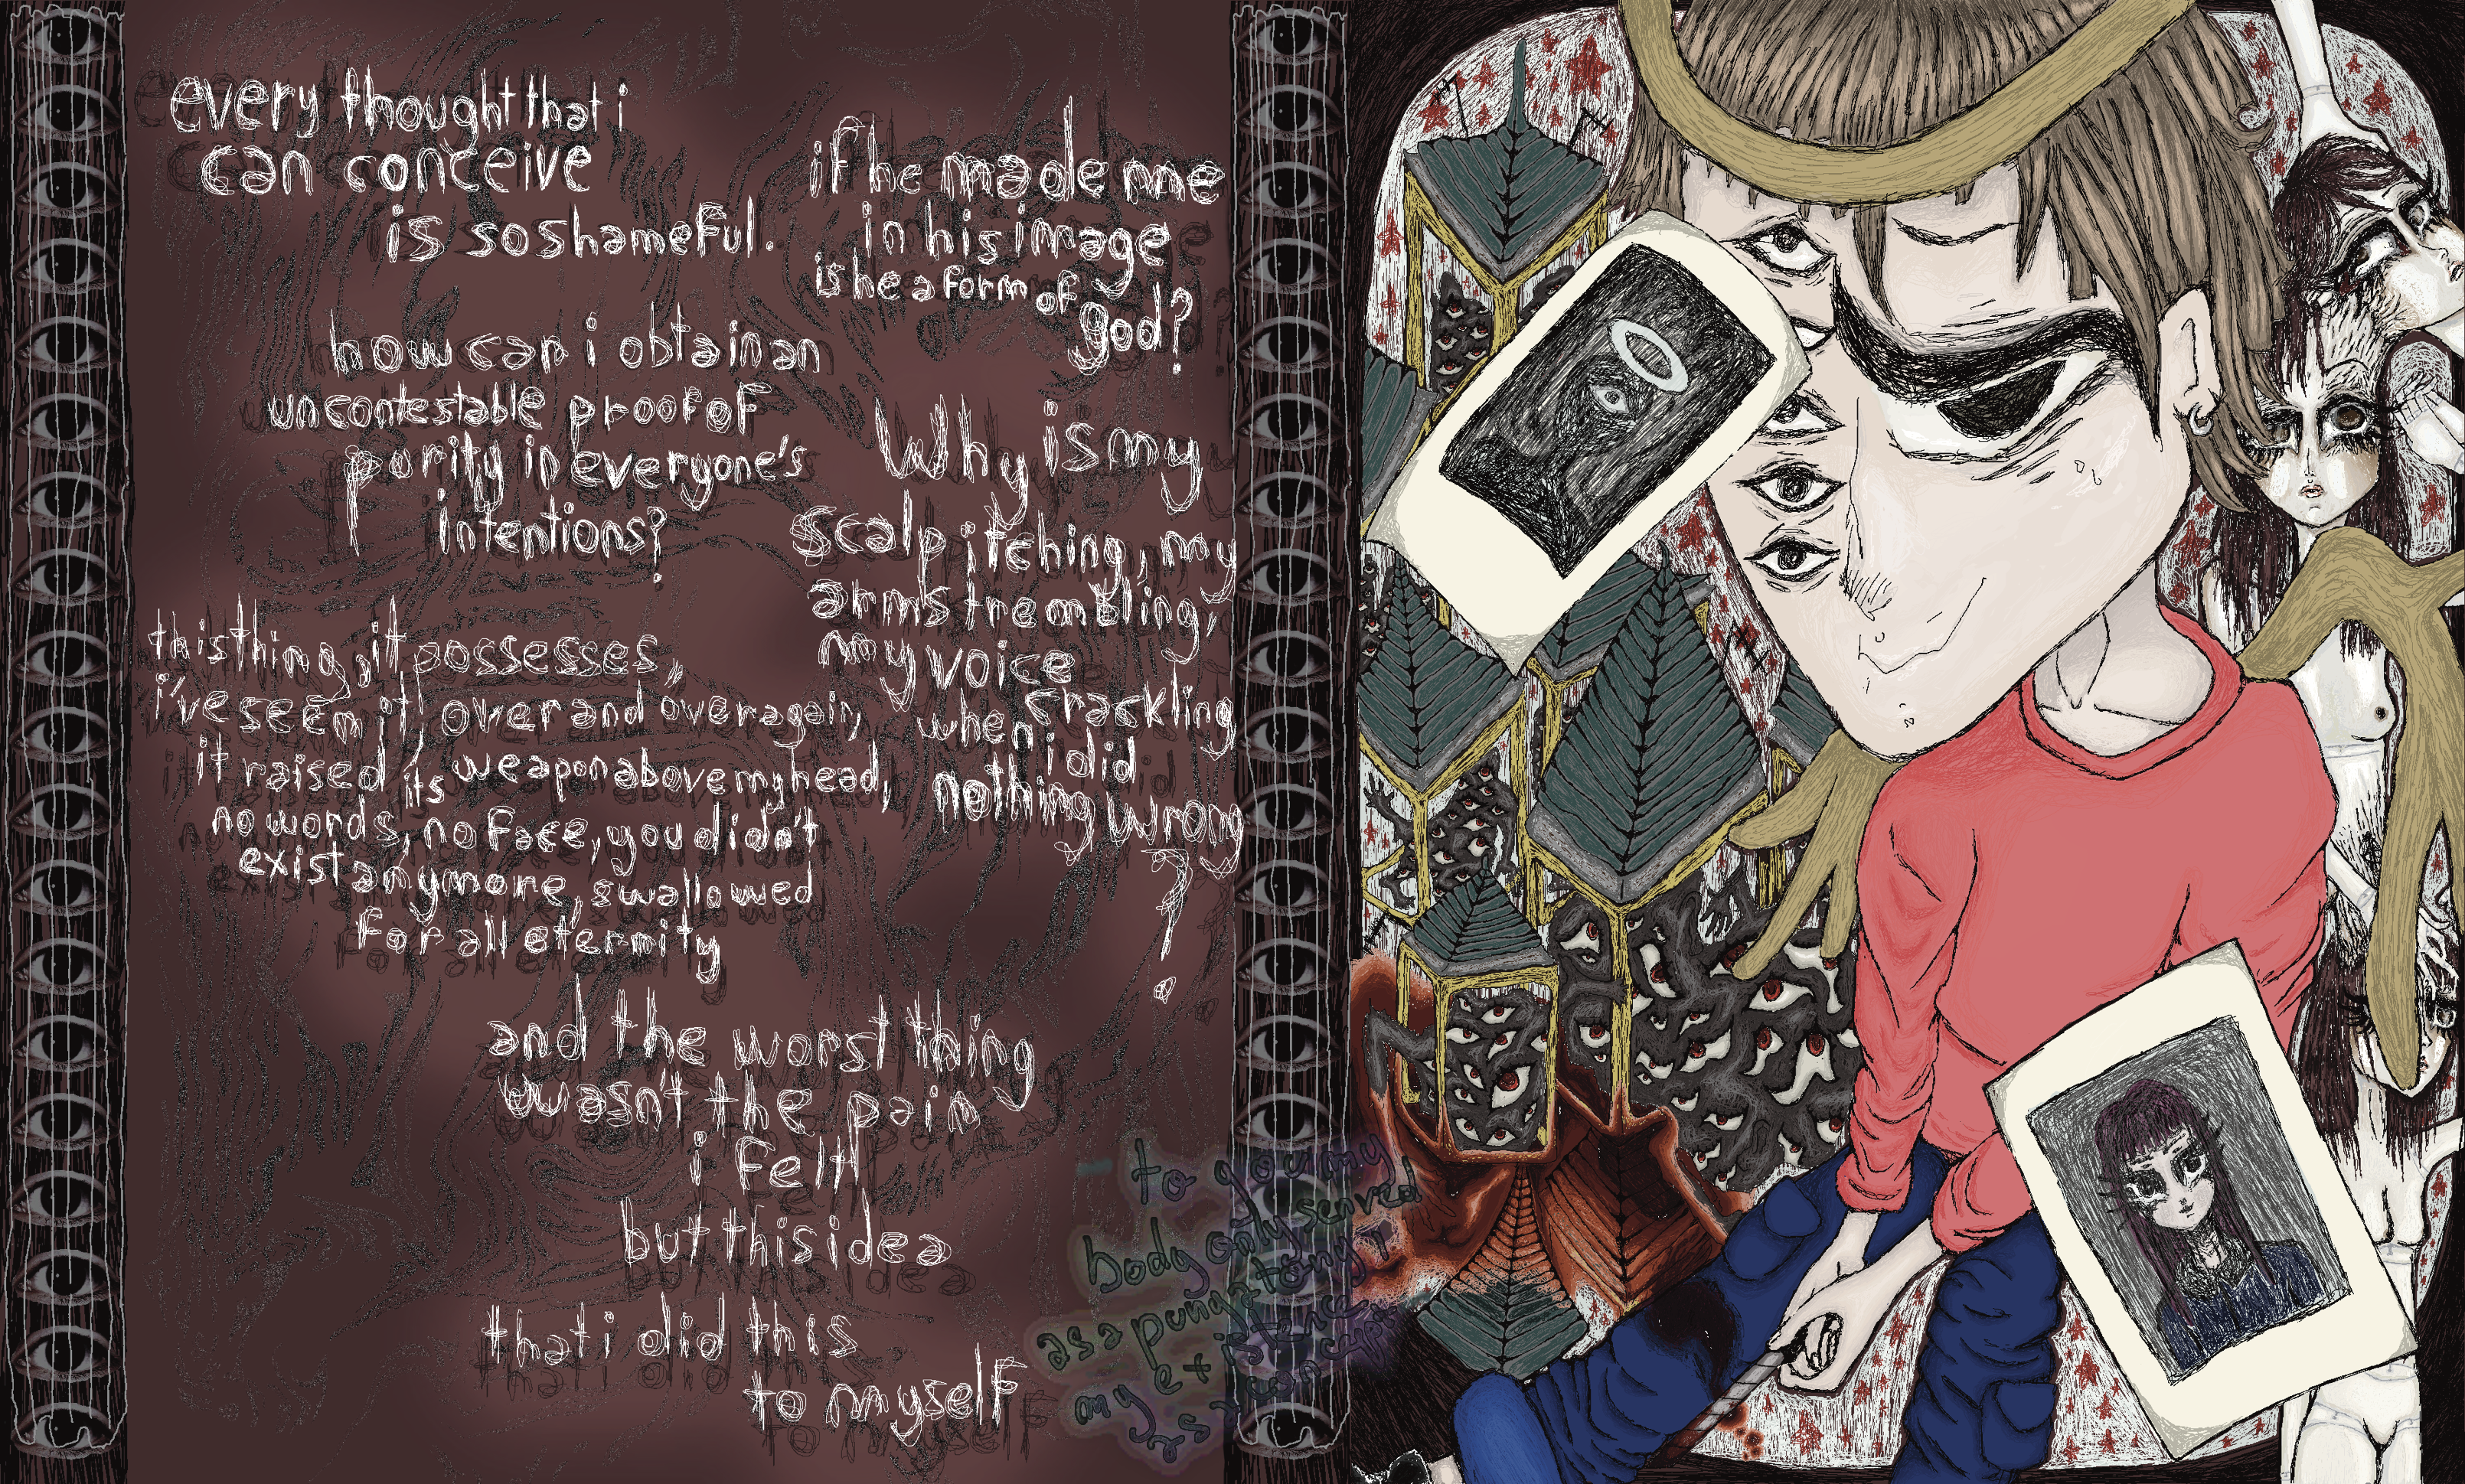 every thought that i
can conceive
is so shameful.
how can i obtain an
uncontestable proof of
purity in everyone's
intentions?
this thing, it possesses,
i've seem it, over and over again,
it raised its weapon above my head,
no words, no face, you didn't
exist anymore, swallowed
for all eternity
and the worst thing
wasn't the pain
i felt
but this idea
that i did this
to myself
if he made me
in his image
is he a form of
god?
Why is my
scalp itching, my
arms trembling,
my voice
crackling
when i did
nothing wrong
?
to you my
body only served
as a purgatory
my existence
as a concept